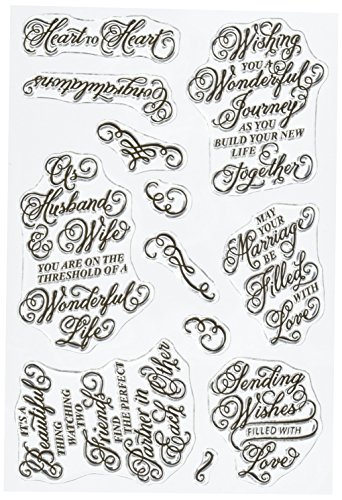 Heart to Heart
Congratulations
Wishing
YOU A
Wonderful
Journey
AS YOU
BUILD YOUR NEW
LIFE
Together
As
Husband
&
Wife
YOU ARE ON THE
THRESHOLD OF A
Wonderful
Life
MAY
YOUR
Marriage
BE
Filled
WITH
Love
IT'S A
Beautiful
THING
WATCHING
TWO
Friends
FIND
THE PERFECT
Partner in
Each Other
Sending
Wishes
FILLED WITH
Love